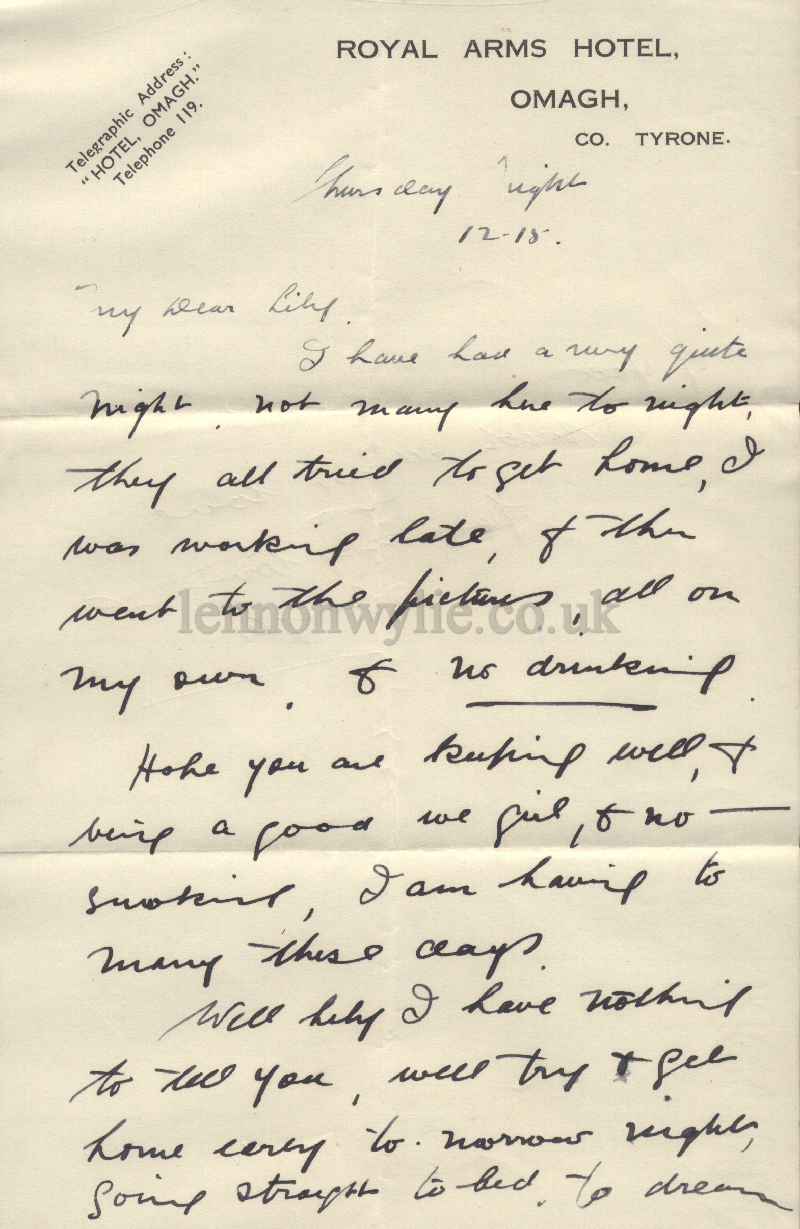 ROYAL ARMS HOTEL,
OMAGH,
CO. TYRONE.
Telegraphic Address:
"HOTEL, OMAGH."
Telephone 119.
Thursday Night
12-15.
My Dear Lily.
I have had a very quite
night, not many here to night,
they all tried to get home, I
was working late, & then
went to the pictures, all on
my own, & no drinking.
Hope you are keeping well, &
being a good wee girl, & no —
smoking, I am having to
many these days
Well Lily I have nothing
to tell you, will try & get
home early to-morrow night,
going straight to bed, to dream
lennonwylie.co.uk